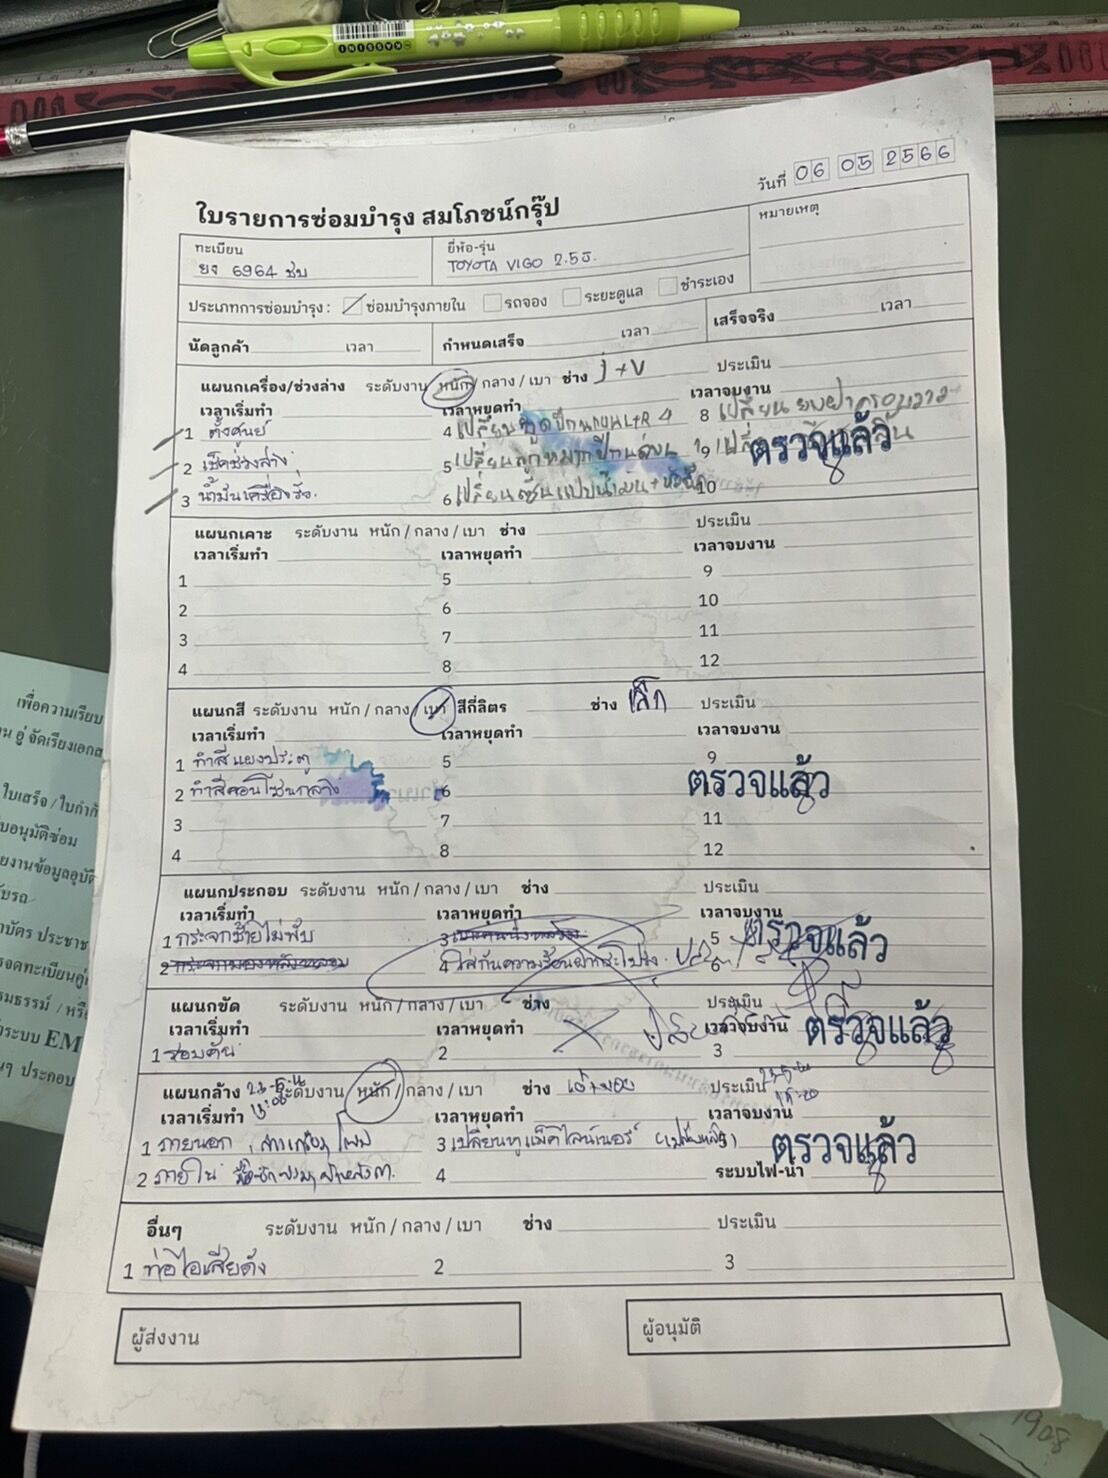 KASSINI
วันที่ 06 05 2566
ใบรายการซ่อมบำรุง สมโภชน์กรุ๊ป
หมายเหตุ
ทะเบียน
ยี่ห้อ-รุ่น
ยง 6964 ชบ
TOYOTA VIGO 2.5J.
ประเภทการซ่อมบำรุง : ซ่อมบำรุงภายใน รถจอง ระยะดูแล ชำระเอง
นัดลูกค้า เวลา กำหนดเสร็จ เวลา เสร็จจริง เวลา
แผนกเครื่อง/ช่วงล่าง ระดับงาน หนัก / กลาง / เบา ช่าง j+v ประเมิน
เวลาเริ่มทำ เวลาหยุดทำ เวลาจบงาน
1 ตั้งศูนย์ 4 เปลี่ยน 8 เปลี่ยน
2 เช็คช่วงล่าง 5 เปลี่ยนลูกหมากปีกนกล่าง 9 ตรวจแล้ว
3 น้ำมันเครื่องรั่ว 6 เปลี่ยน 10
แผนกเคาะ ระดับงาน หนัก / กลาง / เบา ช่าง ประเมิน
เวลาเริ่มทำ เวลาหยุดทำ เวลาจบงาน
1 5 9
2 6 10
3 7 11
4 8 12
แผนกสี ระดับงาน หนัก / กลาง / เบา สีกี่ลิตร ช่าง เล็ก ประเมิน
เวลาเริ่มทำ เวลาหยุดทำ เวลาจบงาน
1 ทำสีแผงประตู 5 9
2 ทำสีคอนโซนกลาง 6 ตรวจแล้ว
3 7 11
4 8 12
แผนกประกอบ ระดับงาน หนัก / กลาง / เบา ช่าง ประเมิน
เวลาเริ่มทำ เวลาหยุดทำ เวลาจบงาน
1 กระจกซ้ายไม่พับ 3 5 ตรวจแล้ว
2 กระจกมองหลังหลอม 4 ใส่กันความร้อนฝากระโปรง
แผนกขัด ระดับงาน หนัก / กลาง / เบา ช่าง ประเมิน
เวลาเริ่มทำ เวลาหยุดทำ เวลาจบงาน ตรวจแล้ว
1 รอบคัน 2 3
แผนกล้าง ระดับงาน หนัก / กลาง / เบา ช่าง ประเมิน
เวลาเริ่มทำ เวลาหยุดทำ เวลาจบงาน
1 ภายนอก 3 เปลี่ยนหูแม็คไลน์เนอร์ 5 ตรวจแล้ว
2 ภายใน 4 ระบบไฟ-น้ำ
อื่นๆ ระดับงาน หนัก / กลาง / เบา ช่าง ประเมิน
1 ท่อไอเสียดัง 2 3
ผู้ส่งงาน ผู้อนุมัติ
เพื่อความเรียบ
อู่ จัดเรียงเอกส
ใบเสร็จ / ใบกำกั
บอนุมัติซ่อม
ยงานข้อมูลอุบัติ
บรถ
าบัตร ประชาช
รจดทะเบียนคู่
รมธรรม์ / หรือ
ระบบ EM
นๆ ประกอบ
1908